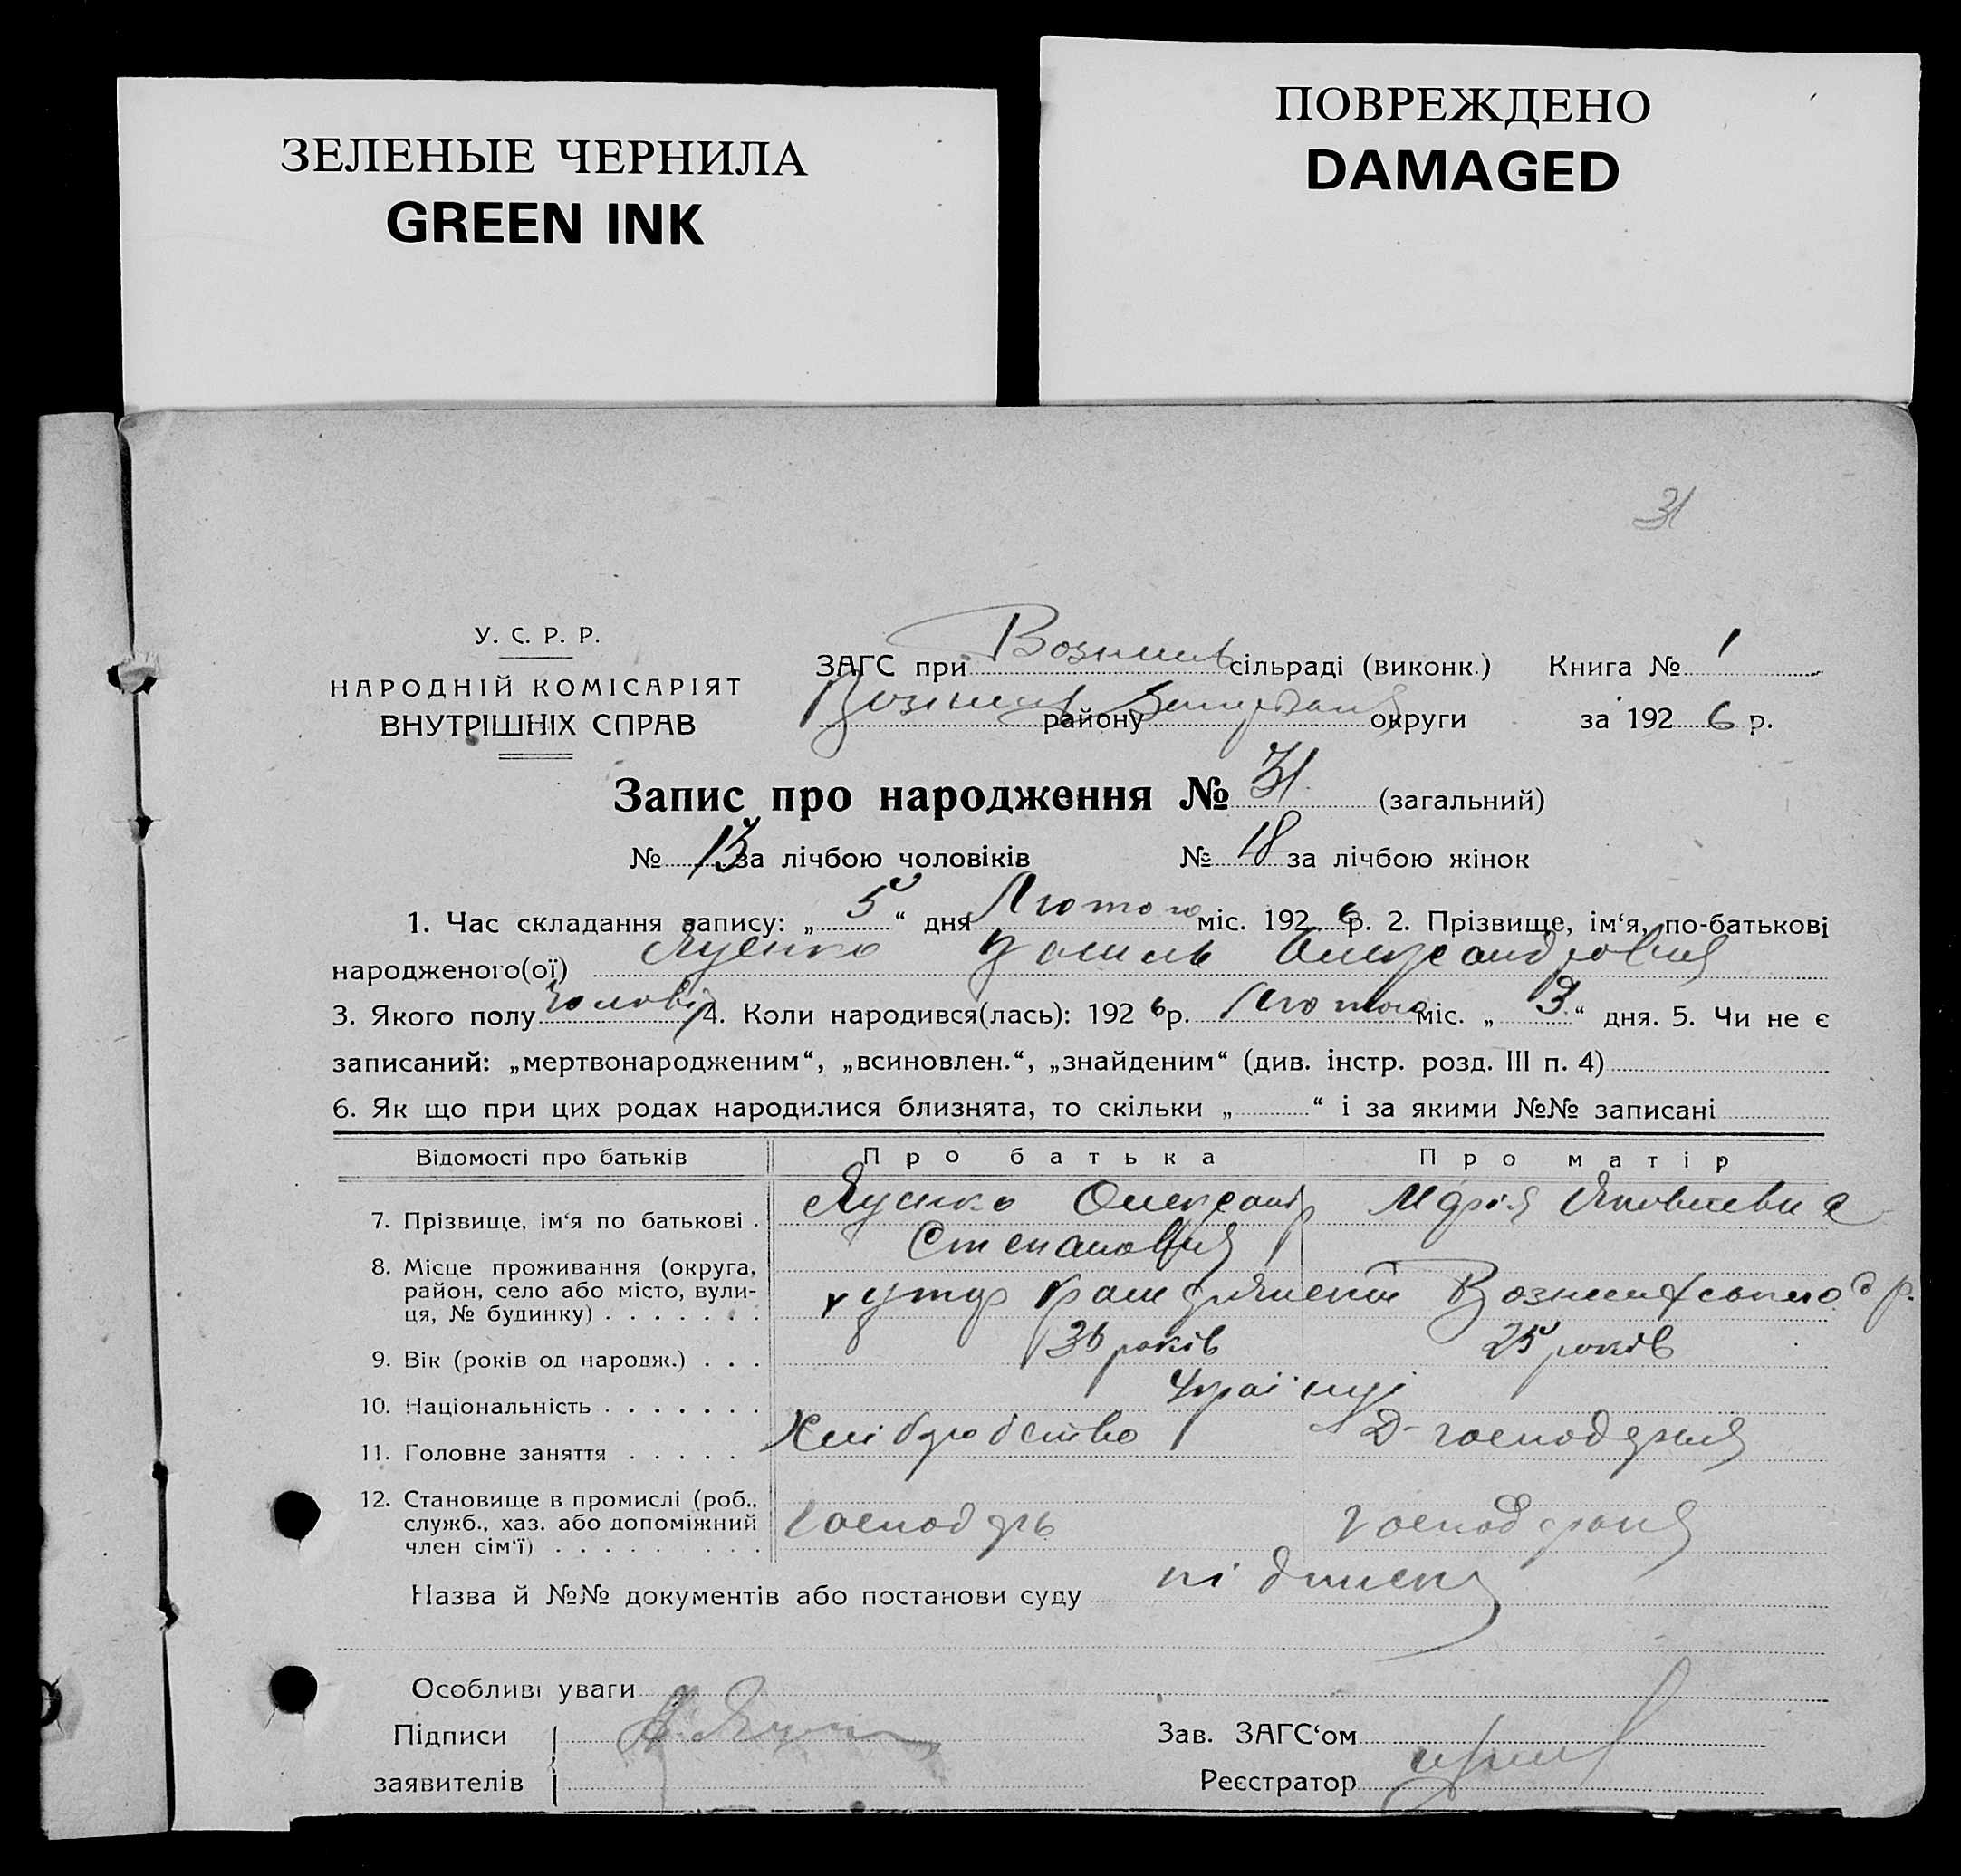 ЗЕЛЕНЫЕ ЧЕРНИЛА
GREEN INK
ПОВРЕЖДЕНО
DAMAGED
31
У. С. Р. Р.
НАРОДНІЙ КОМІСАРІЯТ
ВНУТРІШНІХ СПРАВ
ЗАГС при сільраді (виконк.) Книга № 1
району округи за 192 6 р.
Запис про народження № 31 (загальний)
№ 13 за лічбою чоловіків № 18 за лічбою жінок
1. Час складання запису: „ 5 “ дня Лютого міс. 192 6 р. 2. Прізвище, ім‘я, по-батькові
народженого(ої) Яценко Олександрович
3. Якого полу 4. Коли народився(лась): 192 6 р. Лютого міс. „ 3 “ дня. 5. Чи не є
записаний: „мертвонародженим“, „всиновлен.“, „знайденим“ (див. інстр. розд. III п. 4)
6. Як що при цих родах народилися близнята, то скільки „ “ і за якими №№ записані
Відомості про батьків Про батька Про матір
7. Прізвище, ім‘я по батькові . Яценко Олександр Марія Яковлевна
Степанович
8. Місце проживання (округа,
район, село або місто, вули-
ця, № будинку) . . . . . . . хутор р.
9. Вік (років од народж.) . . . 36 років 25 років
10. Національність . . . . . . . Українці
11. Головне заняття . . . . . Хліборобство Д-господарня
12. Становище в промислі (роб.,
служб., хаз. або допоміжний
член сім‘ї) . . . . . . . . господарь господарня
Назва й №№ документів або постанови суду підписка
Особливі уваги
Підписи
заявителів
Зав. ЗАГС‘ом
Реєстратор